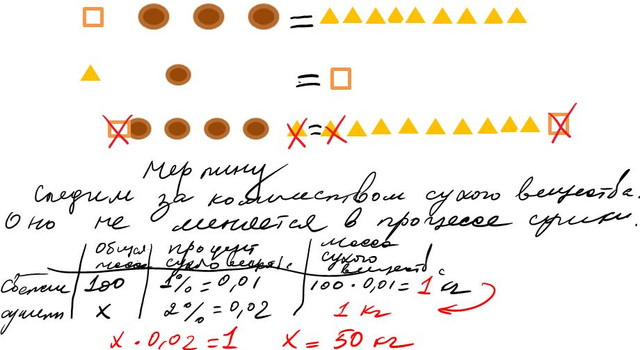 =
=
=
Следим за количеством сухого вещества.
Оно не меняется в процессе сушки.
Общая масса | процент сухого | масса сухого
100 | 1% = 0,01 | 100 · 0,01 = 1 кг
x | 2% = 0,02 | 1 кг
x · 0,02 = 1 x = 50 кг